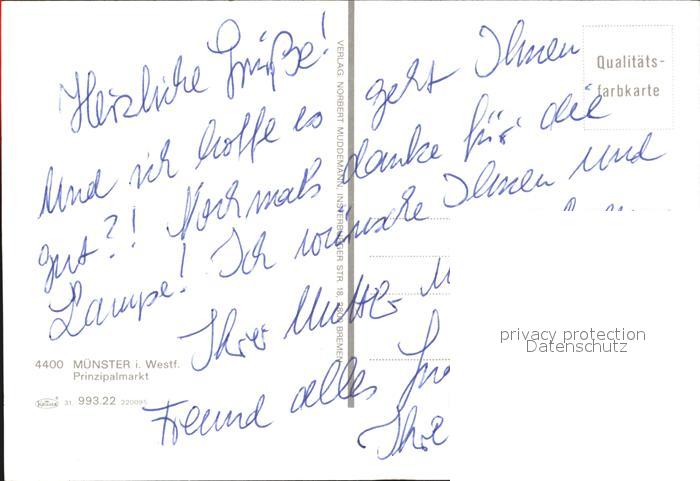 Herzliche Grüße!
Und ich hoffe es geht Ihnen
gut?! Nochmals danke für die
Lampe! Ich wünsche Ihnen und
Ihrer Mutter
Freund alles
Ihre
Qualitäts-
farbkarte
VERLAG NORBERT MUDDEMANN, INSTERBURGER STR. 18, 2800 BREMEN
4400 MÜNSTER i. Westf.
Prinzipalmarkt
Krüger 31. 993.22 220095
privacy protection
Datenschutz